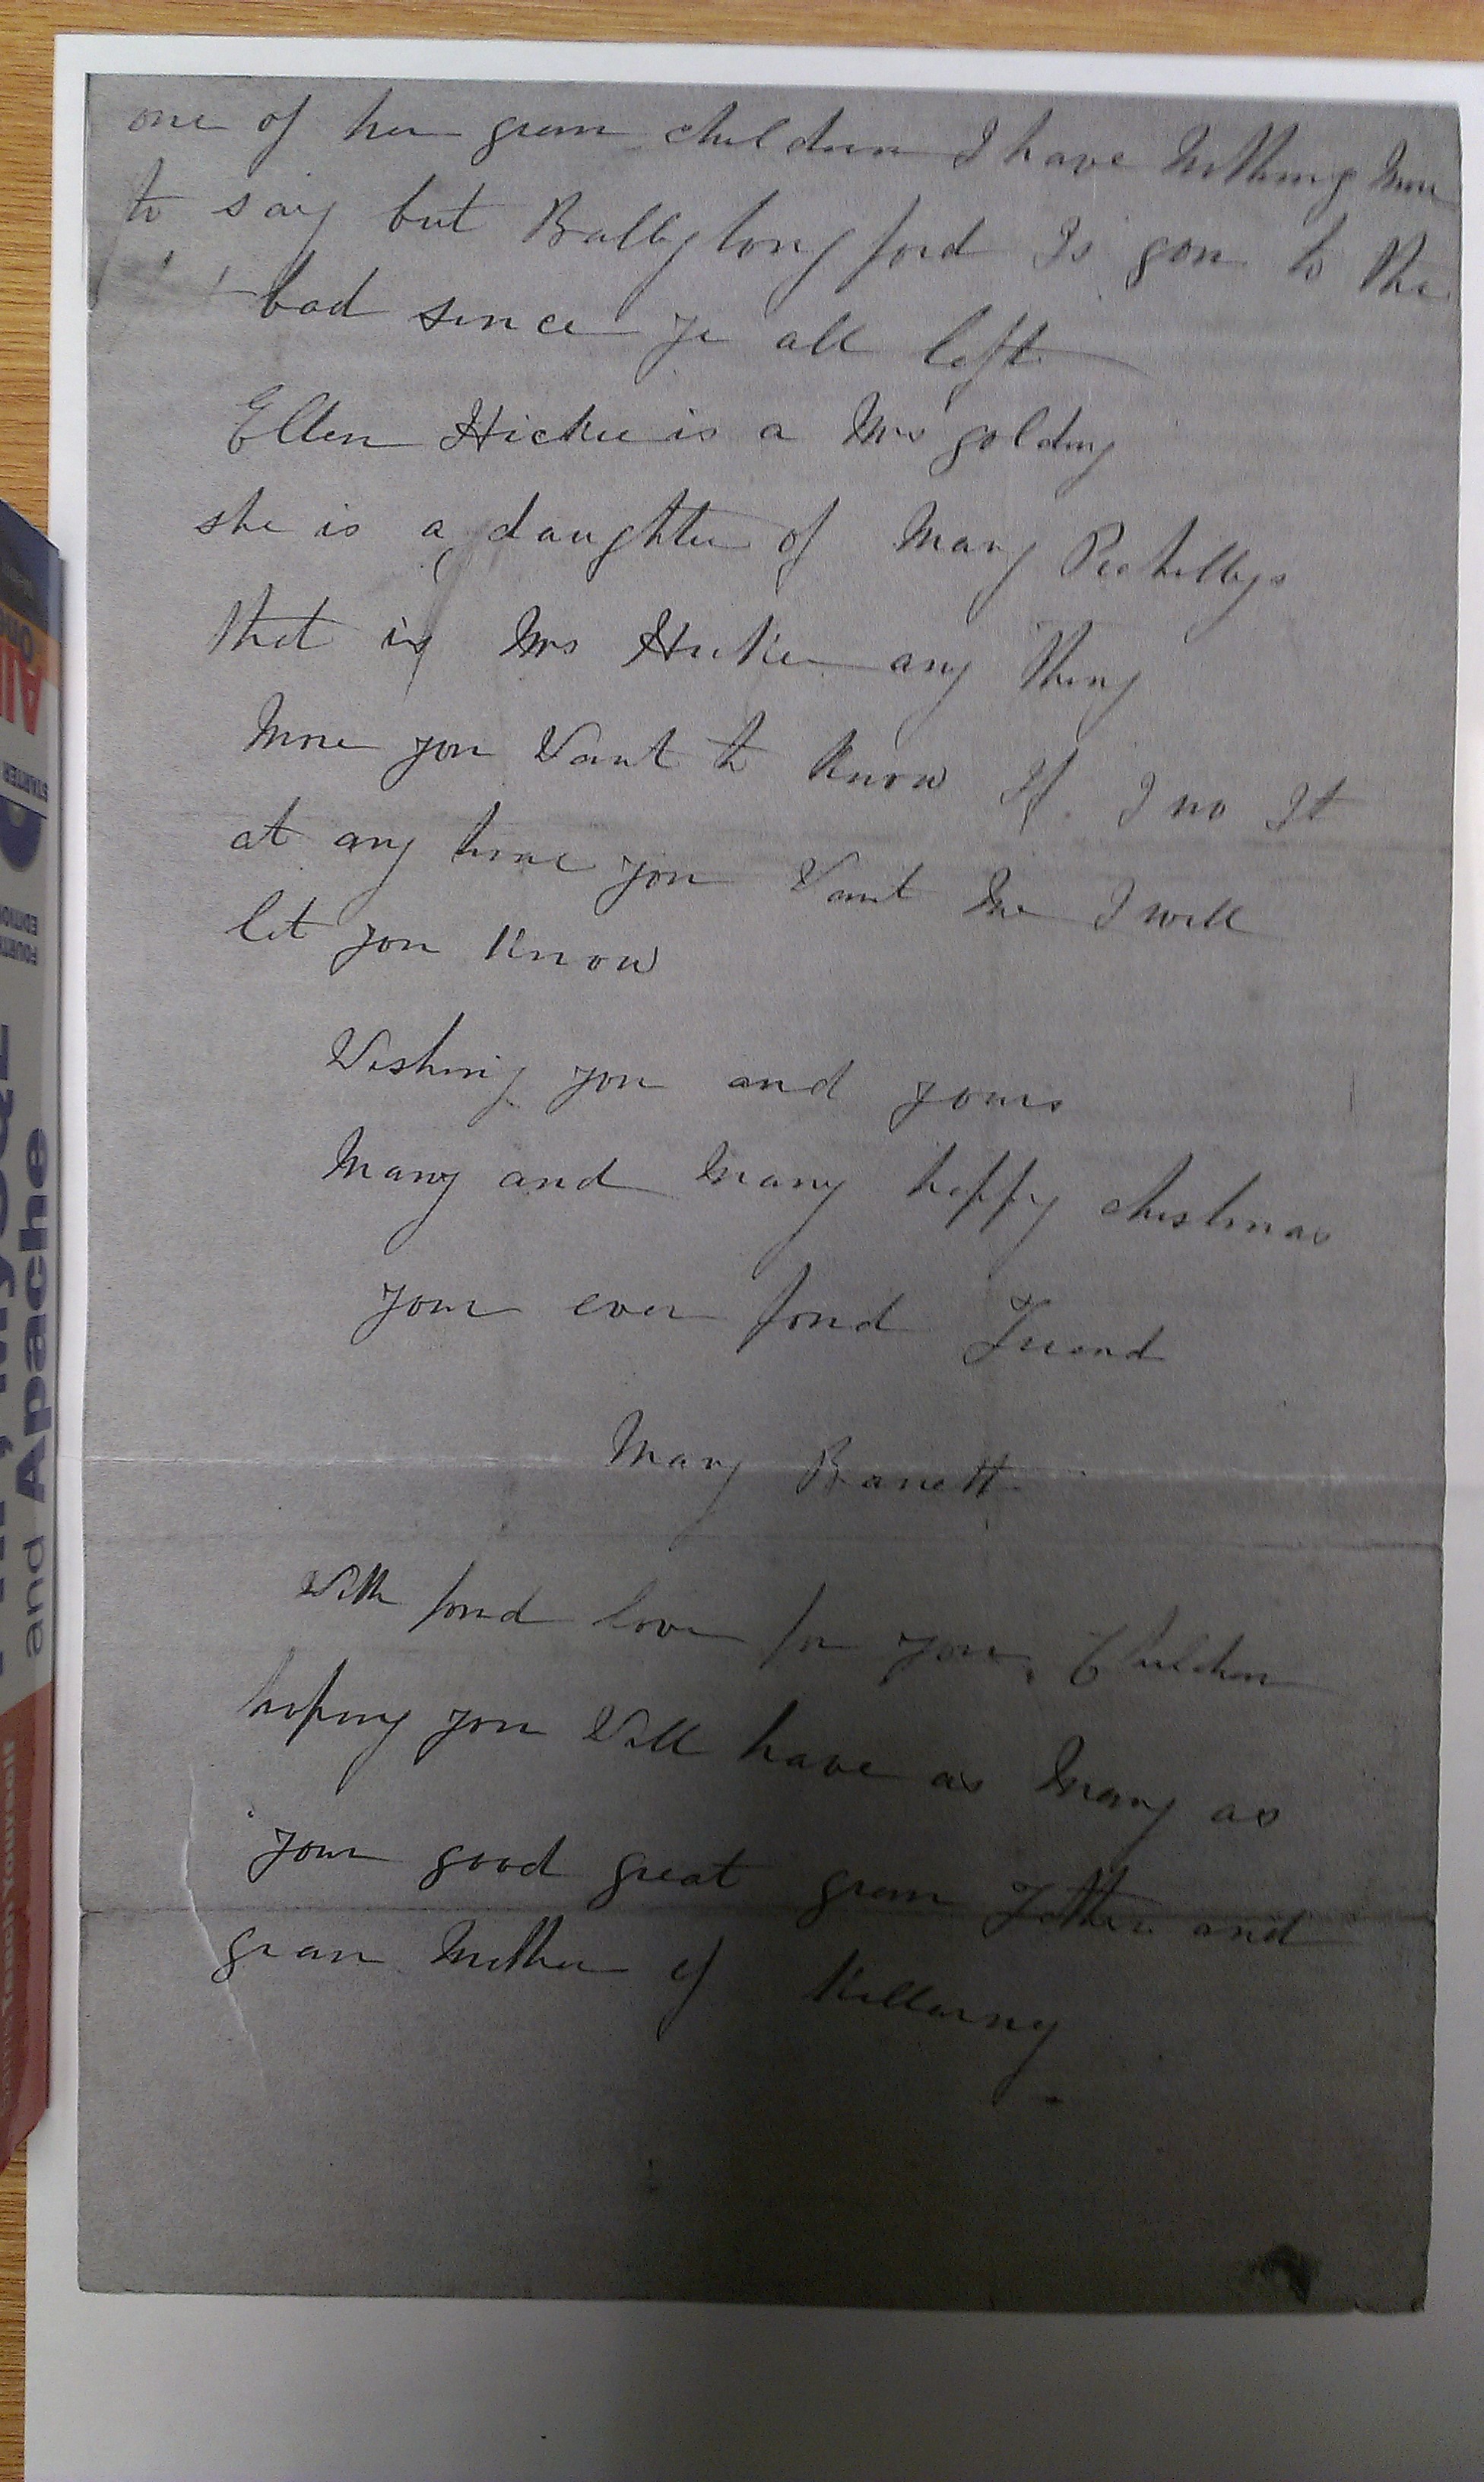 one of her gran children I have nothing more
to say but Ballylongford Is gon to the
bad since ye all left
Ellen Hickie is a Mrs golding
she is a daughter of Mary
that is Mrs Hickie any thing
More you Want to Know If I no It
at any time you Want Me I will
let you Know
Wishing you and yours
Many and Many happy christmas
your ever fond Friend
Mary Barrett
With fond love for your Children
hoping you Will have as Many as
your good great gran Father and
gran Mother of Killarny
and Apache
Sams Teach Yourself
STARTER
FOURTH
EDITION